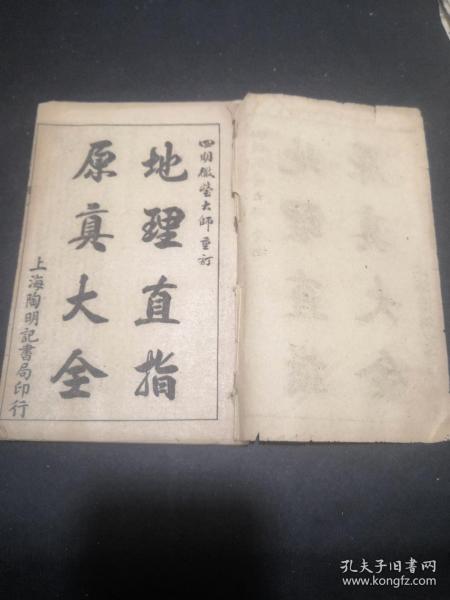 四明徹瑩大師重訂
地理直指
原真大全
上海陶明記書局印行
孔夫子旧书网
www.kongfz.com